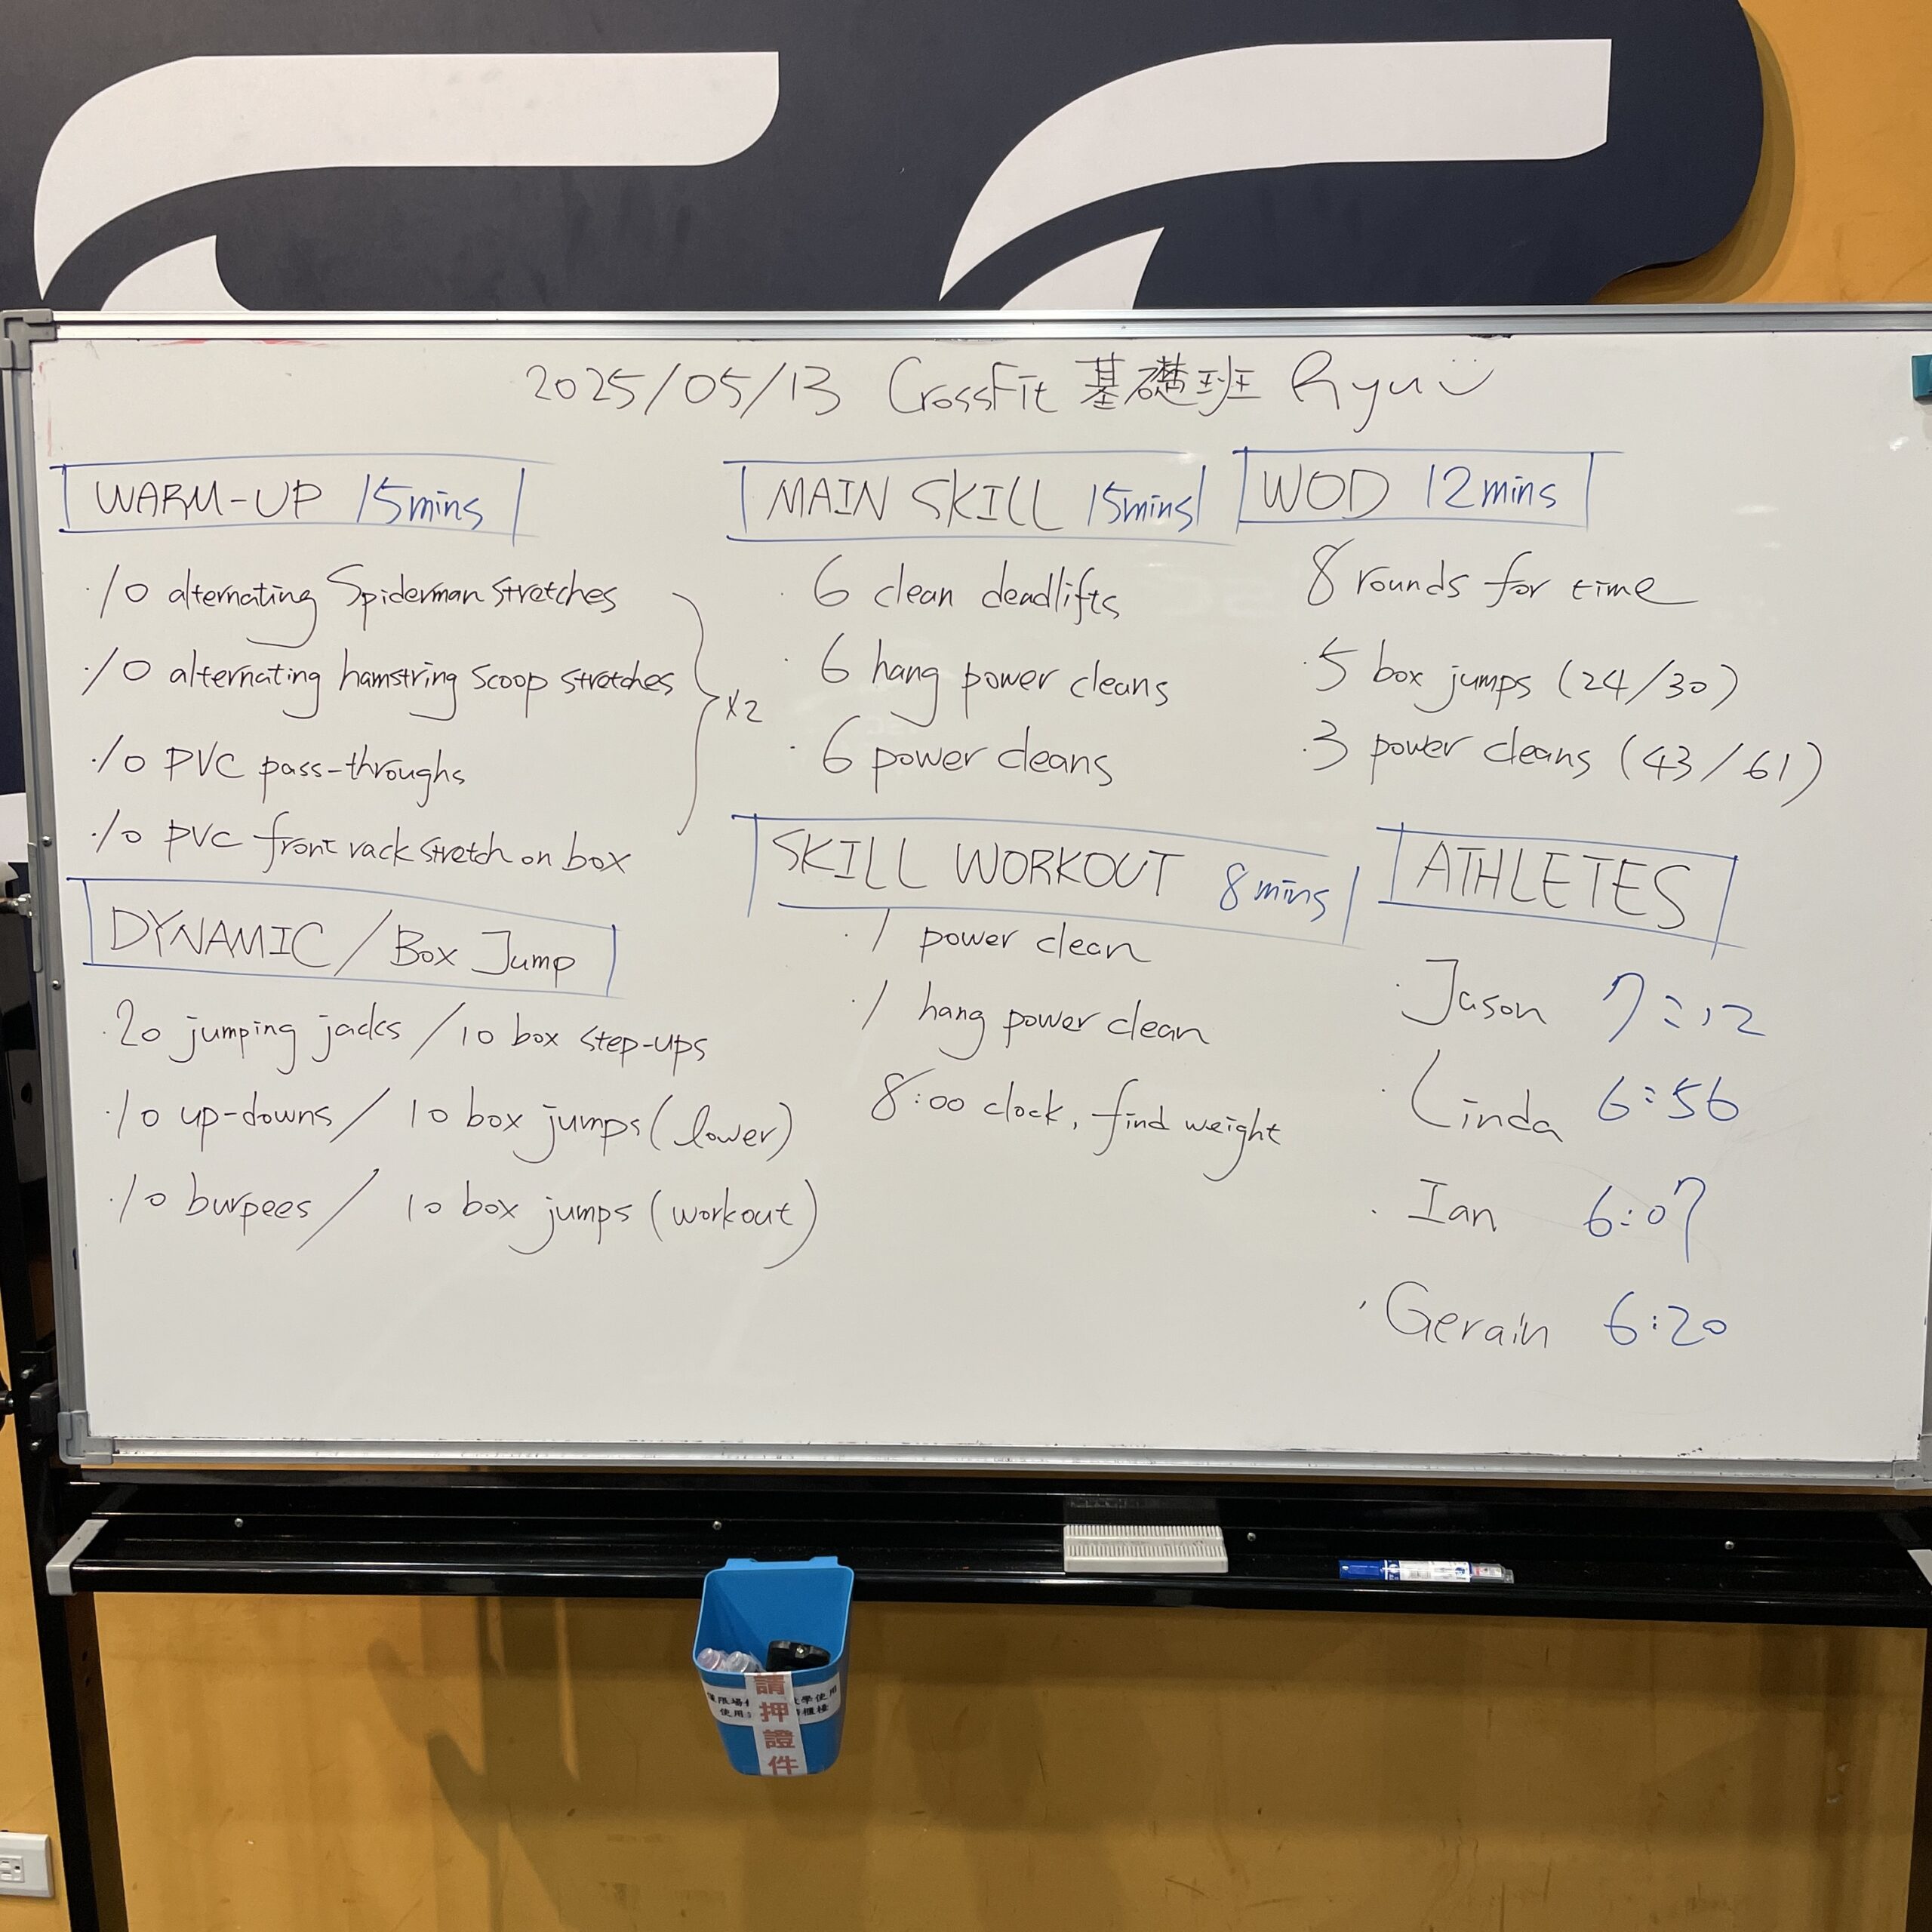 2025/05/13 CrossFit 基礎班 Ryu
WARM-UP 15mins
·10 alternating Spiderman stretches
·10 alternating hamstring scoop stretches
·10 PVC pass-throughs
·10 PVC front rack stretch on box
x2
DYNAMIC / Box Jump
·20 jumping jacks / 10 box step-ups
·10 up-downs / 10 box jumps (lower)
·10 burpees / 10 box jumps (workout)
MAIN SKILL 15mins
· 6 clean deadlifts
· 6 hang power cleans
· 6 power cleans
SKILL WORKOUT 8mins
·1 power clean
·1 hang power clean
8:00 clock, find weight
WOD 12mins
8 rounds for time
·5 box jumps (24/30)
·3 power cleans (43/61)
ATHLETES
· Jason 7:12
· Linda 6:56
· Ian 6:07
· Gerain 6:20
請押證件